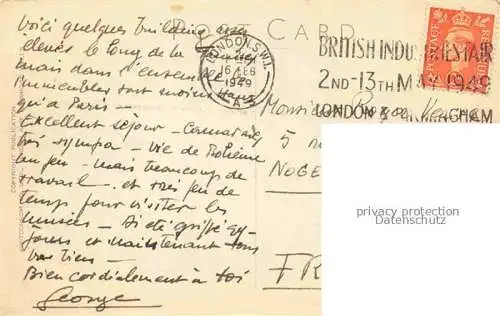 POST CARD
Voici quelques buildings assez
élevés le long de la
mais dans l'ensemble
immeubles sont moins
qu'à Paris -
Excellent séjour - Camarades
très sympa - vie de Bohème
un peu - mais beaucoup de
travail - et très peu de
temps pour visiter les
musées - Ai été grippé 4
jours et maintenant tous
va bien -
Bien cordialement à toi
George
LONDON. S.W.1.
16 FEB
1949
BRITISH INDUSTRIES FAIR
2ND-13TH MAY 1949
LONDON & BIRMINGHAM
POSTAGE
Monsieur Roger
5
NOGE
FR
COPYRIGHT PUBLICATION
privacy protection
Datenschutz